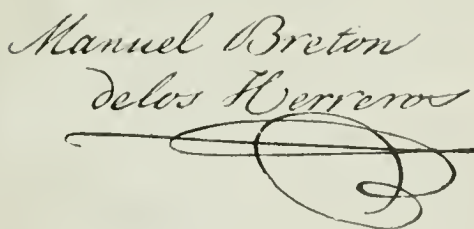 Manuel Breton
delos Herreros